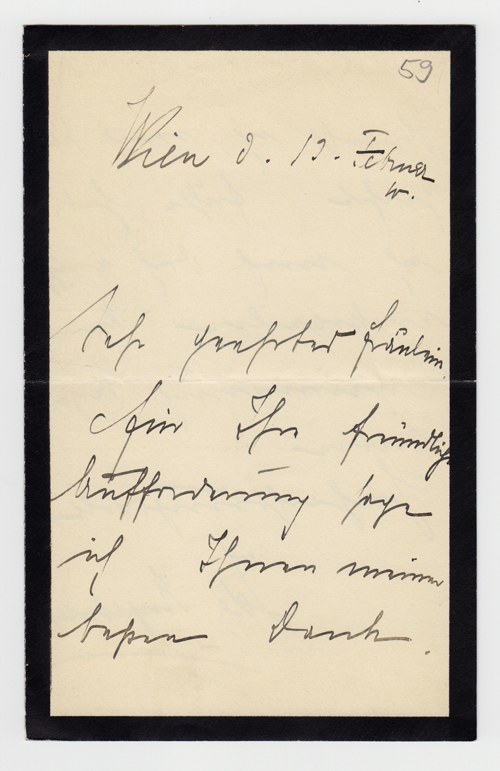 59
Wien d. 13. Februar
Sehr geehrtes Fräulein,
Für Ihre freundliche
Aufforderung sage
ich Ihnen meinen
besten Dank.